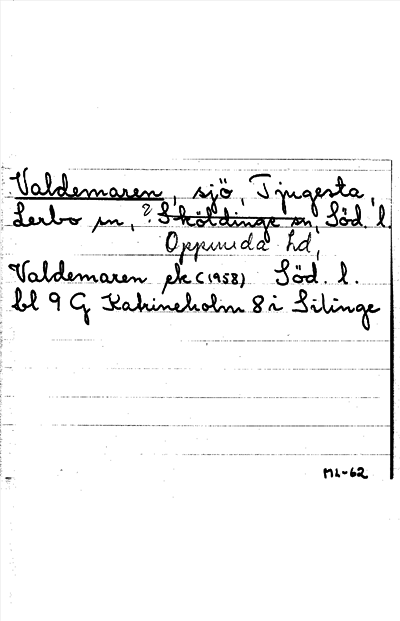 Valdemaren, sjö, Tjugesta,
Lerbo sn, ? Sköldinge sn, Söd. l.
Oppunda hd,
Valdemaren ek (1958) Söd. l.
bl 9 G Katrineholm 8 i Silinge
ML-62